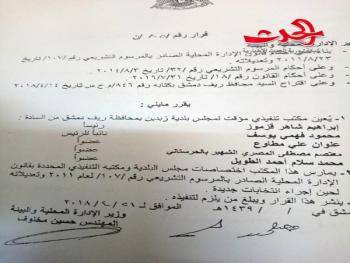 قرار رقم /٨٠٥/
وزير الإدارة المحلية والبيئة
الحدث
بناء على قانون الإدارة المحلية الصادر بالمرسوم التشريعي رقم /١٠٧/ تاريخ
٢٠١١/٨/٢٣ وتعديلاته
وعلى أحكام المرسوم التشريعي رقم /٣٢/ تاريخ ٢٠١٤/٨/٣
وعلى أحكام القانون رقم /١٨/ تاريخ
وعلى اقتراح السيد محافظ ريف دمشق بكتابه رقم ٨٤٦/م ع س تاريخ ٢٠١٨/٤/٢٤
يقرر مايلي :
يُعين مكتب تنفيذي مؤقت لمجلس بلدية زبدين بمحافظة ريف دمشق من السادة :
إبراهيم شاهر قزموز رئيساً
محمود فهمي يوسف نائباً للرئيس
علوان علي مطاوع عضواً
معتصم مصطفى المصري الشهير بالخرستاني عضواً
محمد سلام أحمد الطويل عضواً
يمارس هذا المكتب اختصاصات مجلس البلدية ومكتبه التنفيذي المحددة بقانون
الإدارة المحلية الصادر بالمرسوم التشريعي رقم /١٠٧/ لعام ٢٠١١ وتعديلاته
لحين إجراء انتخابات جديدة .
ينشر هذا القرار ويبلغ من يلزم لتنفيذه .
دمشق في / / ١٤٣٩هـ الموافق لـ ٢٠١٨/٦/٢١
وزير الإدارة المحلية والبيئة
المهندس حسين مخلوف